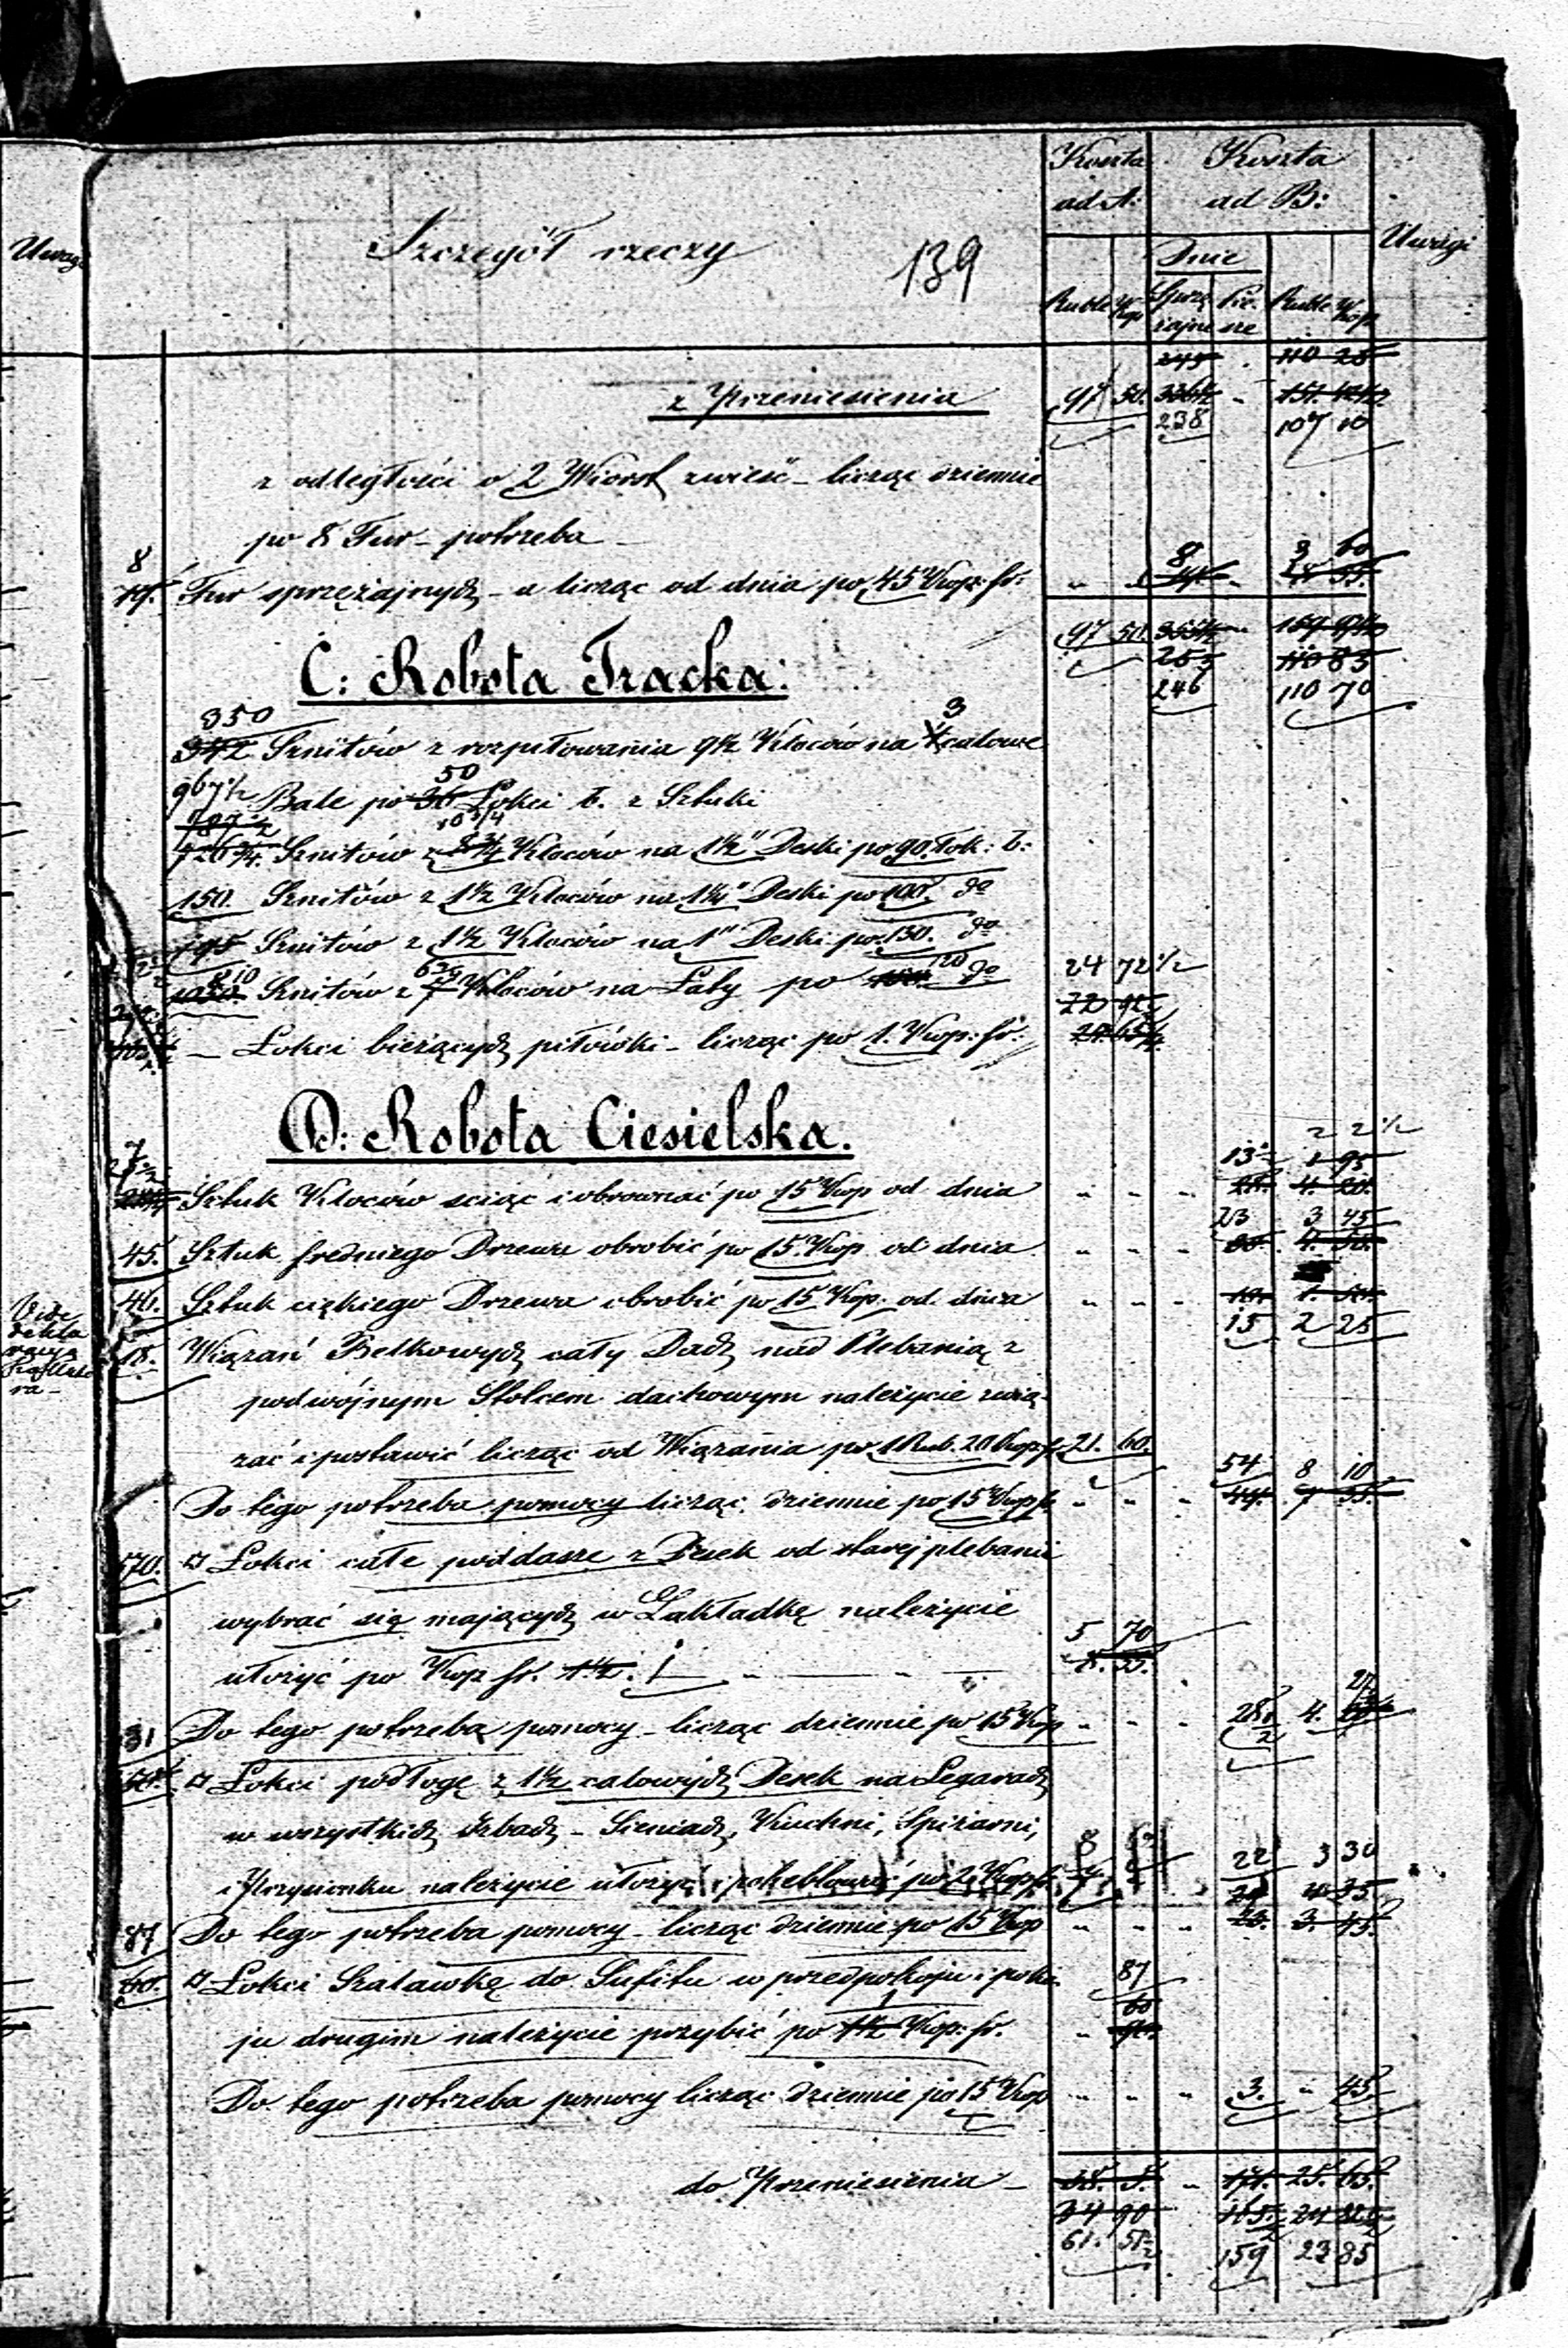 Koszta Koszta
ad A: ad B:
Uwagi Szczegół rzeczy 139 Uwagi
Dnie
Ruble Kop Sprzę Pie Ruble Kop
żajne sze
245 110 25
z Przeniesienia 97 50. 336½ 151. 42½
238 107 10
z odległości o 2 Wiorst zwieść - licząc dziennie
po 8 Fur - potrzeba
8 8 3 60
Fur sprzężajnych - a licząc od dnia po 45 Kop: sr:
97 50.
C: Robota Tracka: 110 85
246 110 70
350 3
342 Sznitów z rozpiłowania 9½ Kloców na calowe
967½ 50
Bale po 36 Łokci b. z Sztuki
787½ 10 3/4
726¾. Sznitów z 8¾ Kloców na 1½" Deski po 90. Łok: b:
150. Sznitów z 1½ Kloców na 1¼" Deski po 100. do
195 Sznitów z 1½ Kloców na 1" Deski po 130. do
810 120 24 72½
Sznitów z 7 Kloców na Łaty po do
- Łokci bieżących piłówki - licząc po 1. Kop: sr:
D: Robota Ciesielska.
2 2½
13 1 95
Sztuk Kloców sciąć i obrównać po 15 Kop od dnia 4. 20.
23 3 45
45. Sztuk średniego Drzewa obrobić po 15 Kop od dnia
40. Sztuk ciężkiego Drzewa obrobić po 15 Kop: od dnia
15 2 25
18. Wiązań Belkowych cały Dach nad Plebanią z
podwójnym Stolcem dachowym należycie zwią-
zać i postawić licząc od Wiązania po 1 Rub. 20 Kop sr 21. 60.
54 8 10
Do tego potrzeba pomocy licząc dziennie po 15 Kop sr
570. □ Łokci całe poddasze z Desek od starej plebanii
wybrać się mających w Zakładkę należycie
5 70
ułożyć po Kop sr. 1½. 1
27
Do tego potrzeba pomocy - licząc dziennie po 15 Kop 28½ 4.
□ Łokci podłogę z 1½ calowych Desek na Legarach
w wszystkich Izbach - Sieniach, Kuchni, Spiżarni,
8 22 3 30
i Przysionku należycie ułożyć i poheblować po 2 Kop sr
Do tego potrzeba pomocy - licząc dziennie po 15 Kop 3. 45.
87
60. □ Łokci Szalawkę do Sufitu w przedpokoju i poko-
87
60
1
ju drugim należycie przybić po 1½ Kop: sr.
Do tego potrzeba pomocy licząc dziennie po 15 Kop 3. 45.
do Przeniesienia - 38. 5. 171. 25. 65.
34 90 165½
61. 159 23 85